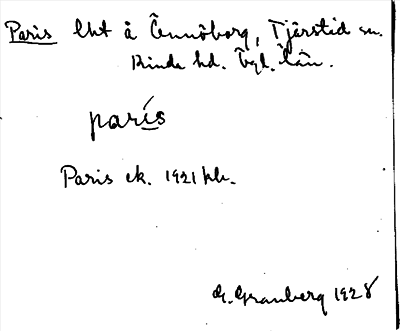 Paris lht å Önnöborg, Tjärstad sn.
Kinda hd. Ögl. län.
parís
Paris ek. 1921 hbl.
G. Granberg 1928